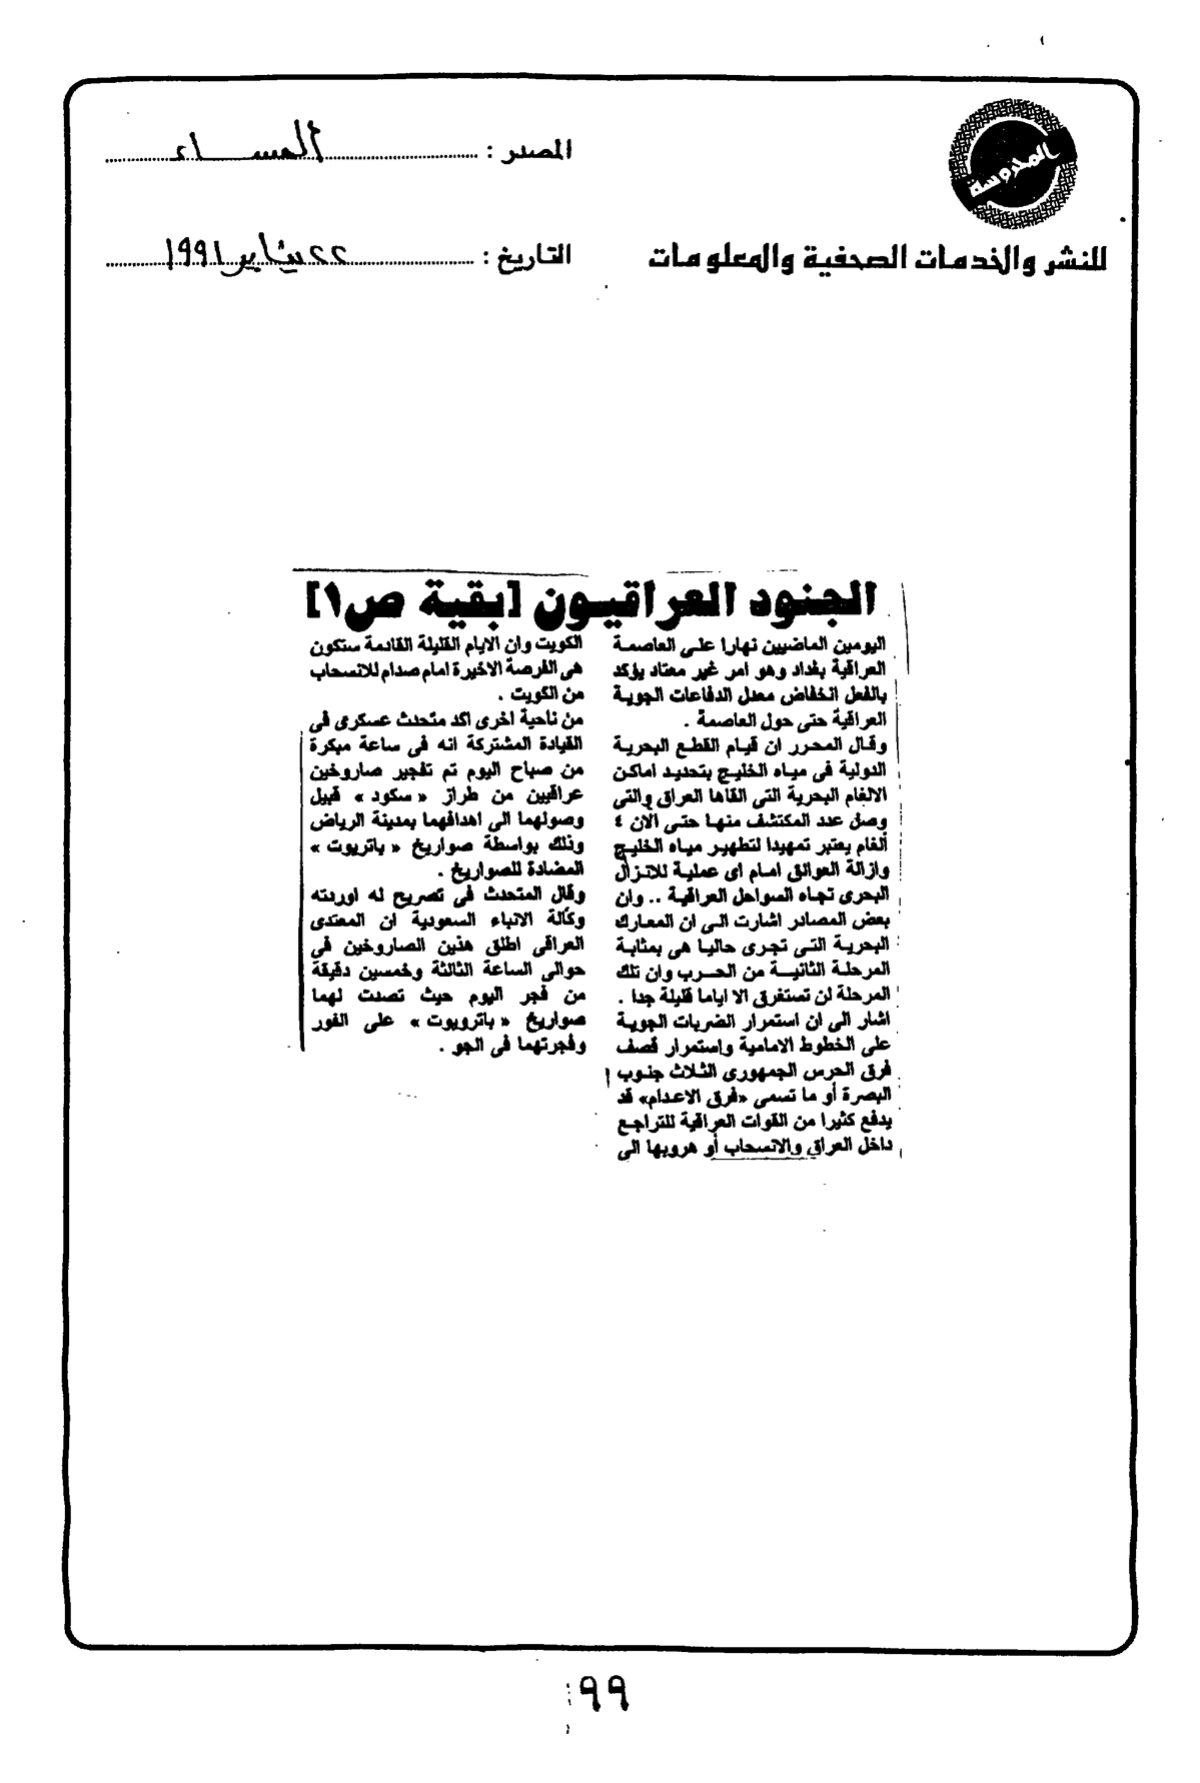 المحروسة
للنشر والخدمات الصحفية والمعلومات
المصدر : المساء
التاريخ : ٢٢ يناير ١٩٩١
الجنود العراقيون [بقية ص١]
اليومين الماضيين نهارا على العاصمة
العراقية بغداد وهو امر غير معتاد يؤكد
بالفعل انخفاض معدل الدفاعات الجوية
العراقية حتى حول العاصمة .
وقال المحرر ان قيام القطع البحرية
الدولية فى مياه الخليج بتحديد اماكن
الالغام البحرية التى القاها العراق والتى
وصل عدد المكتشف منها حتى الآن ٤
ألغام يعتبر تمهيدا لتطهير مياه الخليج
وازالة العوائق امام اى عملية للانزال
البحرى تجاه السواحل العراقية .. وان
بعض المصادر اشارت الى ان المعارك
البحرية التى تجرى حاليا هى بمثابة
المرحلة الثانية من الحرب وان تلك
المرحلة لن تستغرق الا اياما قليلة جدا .
اشار الى ان استمرار الضربات الجوية
على الخطوط الامامية وإستمرار قصف
فرق الحرس الجمهورى الثلاث جنوب
البصرة أو ما تسمى «فرق الاعدام» قد
يدفع كثيرا من القوات العراقية للتراجع
داخل العراق والانسحاب أو هروبها الى
الكويت وان الايام القليلة القادمة ستكون
هى الفرصة الاخيرة امام صدام للانسحاب
من الكويت .
من ناحية اخرى اكد متحدث عسكرى فى
القيادة المشتركة انه فى ساعة مبكرة
من صباح اليوم تم تفجير صاروخين
عراقيين من طراز « سكود » قبيل
وصولهما الى اهدافهما بمدينة الرياض
وذلك بواسطة صواريخ « باتريوت »
المضادة للصواريخ .
وقال المتحدث فى تصريح له اوردته
وكالة الانباء السعودية ان المعتدى
العراقى اطلق هذين الصاروخين فى
حوالى الساعة الثالثة وخمسين دقيقة
من فجر اليوم حيث تصدت لهما
صواريخ « باترويوت » على الفور
وفجرتهما فى الجو .
٩٩